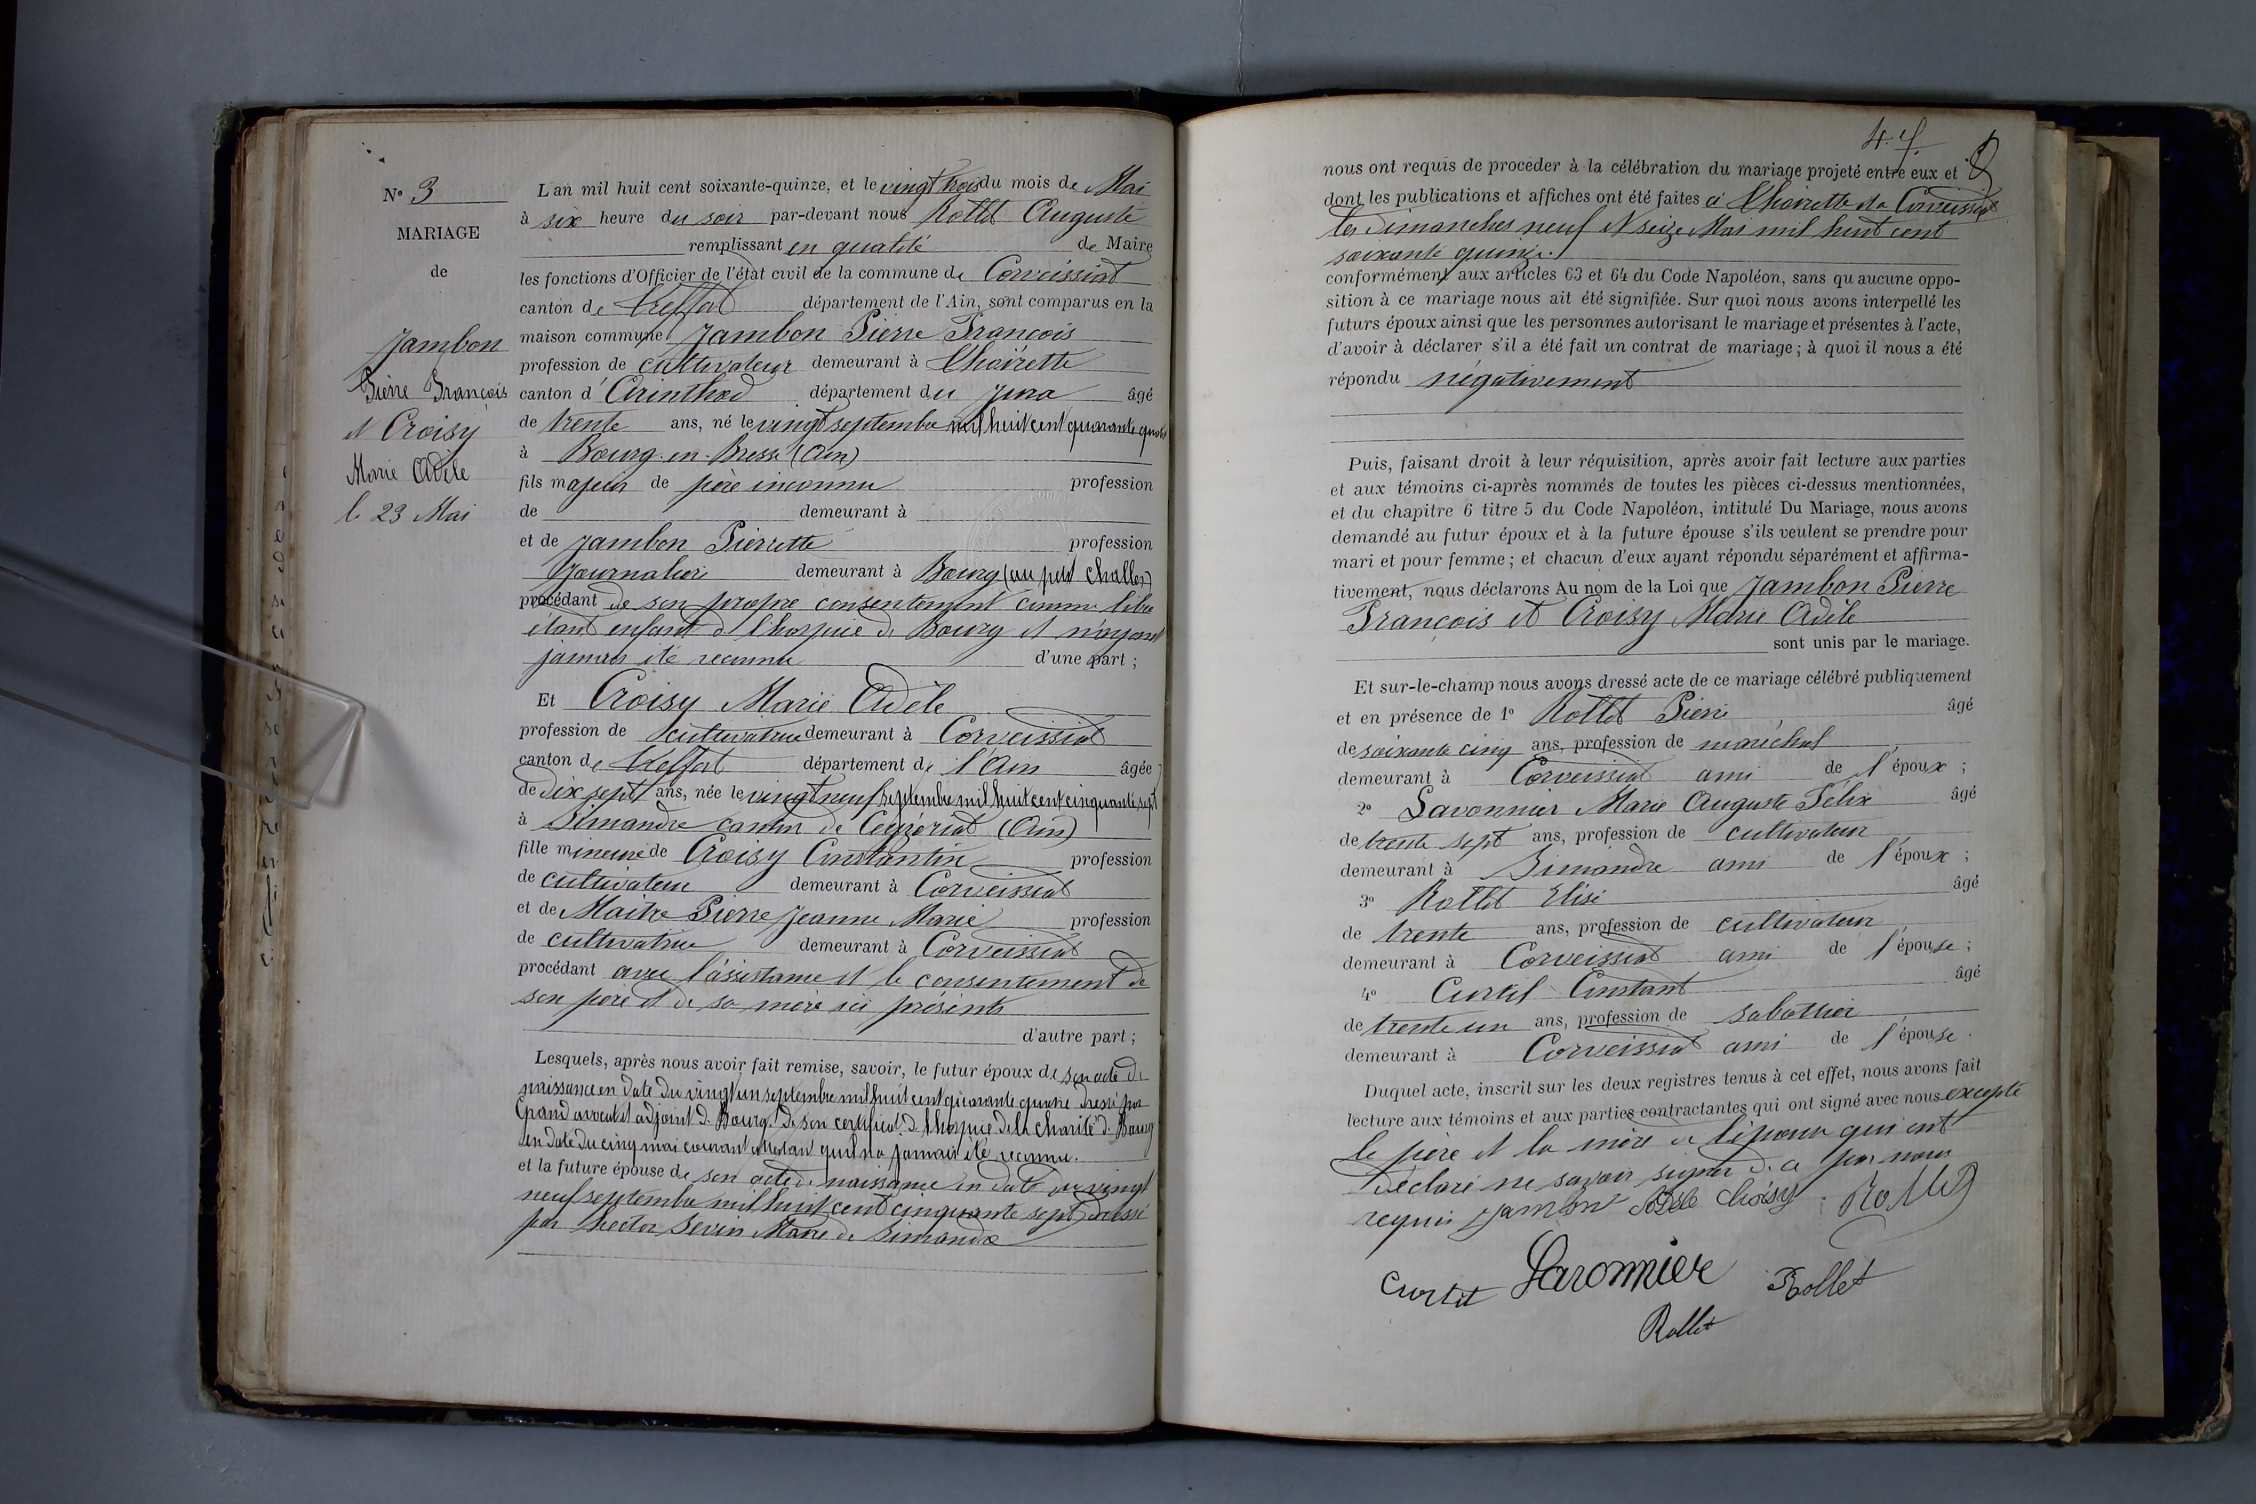 N° 3
MARIAGE
de
Jambon
Pierre François
et Croisy
Marie Adèle
le 23 Mai
L'an mil huit cent soixante-quinze, et le vingt trois du mois de Mai
à six heure du soir par-devant nous Rollet Auguste
remplissant en qualité de Maire
les fonctions d'Officier de l'état civil de la commune de Corveissiat
canton de Treffort département de l'Ain, sont comparus en la
maison commune Jambon Pierre François
profession de cultivateur demeurant à
canton d' Arinthod département du Jura âgé
de trente ans, né le vingt septembre mil huit cent quarante quatre
à Bourg-en-Bresse (Ain)
fils majeur de père inconnu profession
de demeurant à
et de Jambon Pierrette profession
Journalière demeurant à Bourg (au petit Challes)
procédant de son propre consentement comme libre
étant enfant de l'hospice de Bourg et n'ayant
jamais été reconnu d'une part ;
Et Croisy Marie Adèle
profession de cultivatrice demeurant à Corveissiat
canton de Treffort département de l'Ain âgée
de dix sept ans, née le vingt neuf septembre mil huit cent cinquante sept
à Simandre canton de Ceyzériat (Ain)
fille mineure de Croisy Constantin profession
de cultivateur demeurant à Corveissiat
et de Maitre Pierre Jeanne Marie profession
de cultivatrice demeurant à Corveissiat
procédant avec l'assistance et le consentement de
son père et de sa mère ici présents
d'autre part ;
Lesquels, après nous avoir fait remise, savoir, le futur époux de son acte de
naissance en date du vingt un septembre mil huit cent quarante quatre dressé par
avocat et adjoint de Bourg. De son certificat de l'hospice de la charité de Bourg
en date du cinq mai courant attestant qu'il n'a jamais été reconnu.
et la future épouse de son acte de naissance en date du vingt
neuf septembre mil huit cent cinquante sept dressé
par hector Sevin Maire de Simandre
47
nous ont requis de procéder à la célébration du mariage projeté entre eux et
dont les publications et affiches ont été faites à et à Corveissiat
les dimanches neuf et seize Mai mil huit cent
soixante quinze.
conformément aux articles 63 et 64 du Code Napoléon, sans qu'aucune oppo-
sition à ce mariage nous ait été signifiée. Sur quoi nous avons interpellé les
futurs époux ainsi que les personnes autorisant le mariage et présentes à l'acte,
d'avoir à déclarer s'il a été fait un contrat de mariage ; à quoi il nous a été
répondu négativement
Puis, faisant droit à leur réquisition, après avoir fait lecture aux parties
et aux témoins ci-après nommés de toutes les pièces ci-dessus mentionnées,
et du chapitre 6 titre 5 du Code Napoléon, intitulé Du Mariage, nous avons
demandé au futur époux et à la future épouse s'ils veulent se prendre pour
mari et pour femme ; et chacun d'eux ayant répondu séparément et affirma-
tivement, nous déclarons Au nom de la Loi que Jambon Pierre
François et Croisy Marie Adèle
sont unis par le mariage.
Et sur-le-champ nous avons dressé acte de ce mariage célébré publiquement
et en présence de 1° Rollet Pierre âgé
de soixante cinq ans, profession de maréchal
demeurant à Corveissiat ami de l'époux ;
2° Savonnier Marie Auguste Félix âgé
de trente sept ans, profession de cultivateur
demeurant à Simandre ami de l'époux ;
3° Rollet Elisé âgé
de trente ans, profession de cultivateur
demeurant à Corveissiat ami de l'épouse ;
4° Curtil Constant âgé
de trente un ans, profession de sabottier
demeurant à Corveissiat ami de l'épouse.
Duquel acte, inscrit sur les deux registres tenus à cet effet, nous avons fait
lecture aux témoins et aux parties contractantes qui ont signé avec nous excepté
le père et la mère de l'épouse qui ont
déclaré ne savoir signer de ce par nous
requis Jambon Adèle Croisy Rollet
Curtil Savonnier Rollet
Rollet